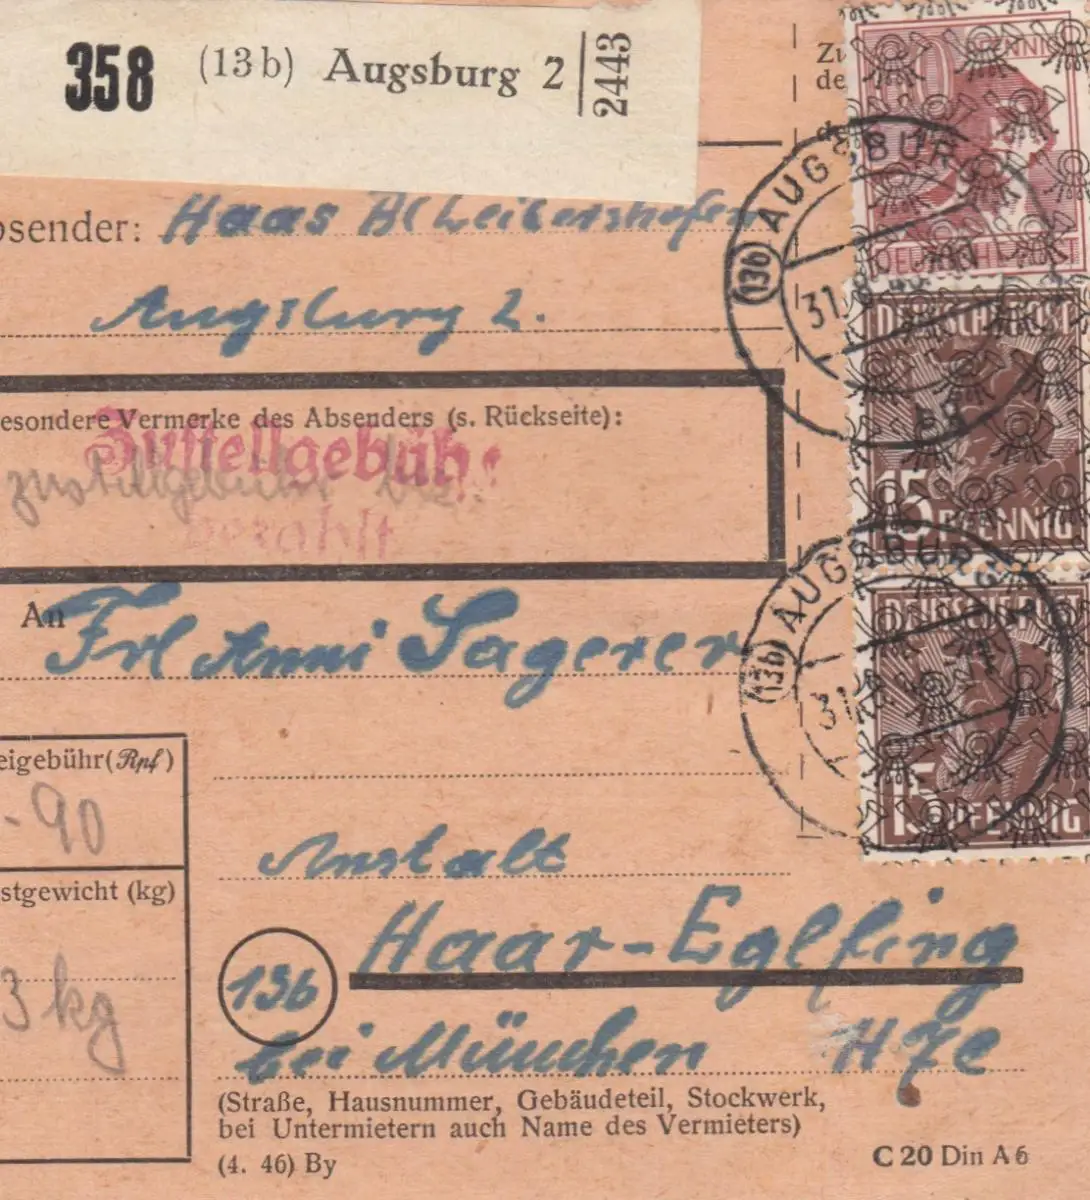 358 (13b) Augsburg 2 2443
Zu
de
d
bsender: Haas
Augsburg 2.
esondere Vermerke des Absenders (s. Rückseite):
Zustellgebühr
bezahlt
zustellgebühr bez.
An Frl Anni Sagerer
eigebühr (Rpf)
-90
stgewicht (kg)
3 kg
Anstalt
13b Haar-Eglfing
bei München H7c
(Straße, Hausnummer, Gebäudeteil, Stockwerk,
bei Untermietern auch Name des Vermieters)
(4. 46) By
C 20 Din A 6
PFENNIG
DEUTSCHE
AUGSBURG
(13b)
31
DEUTSCHE POST
15 PFENNIG
AUGSBURG
(13b)
31
DEUTSCHE POST
15 PFENNIG